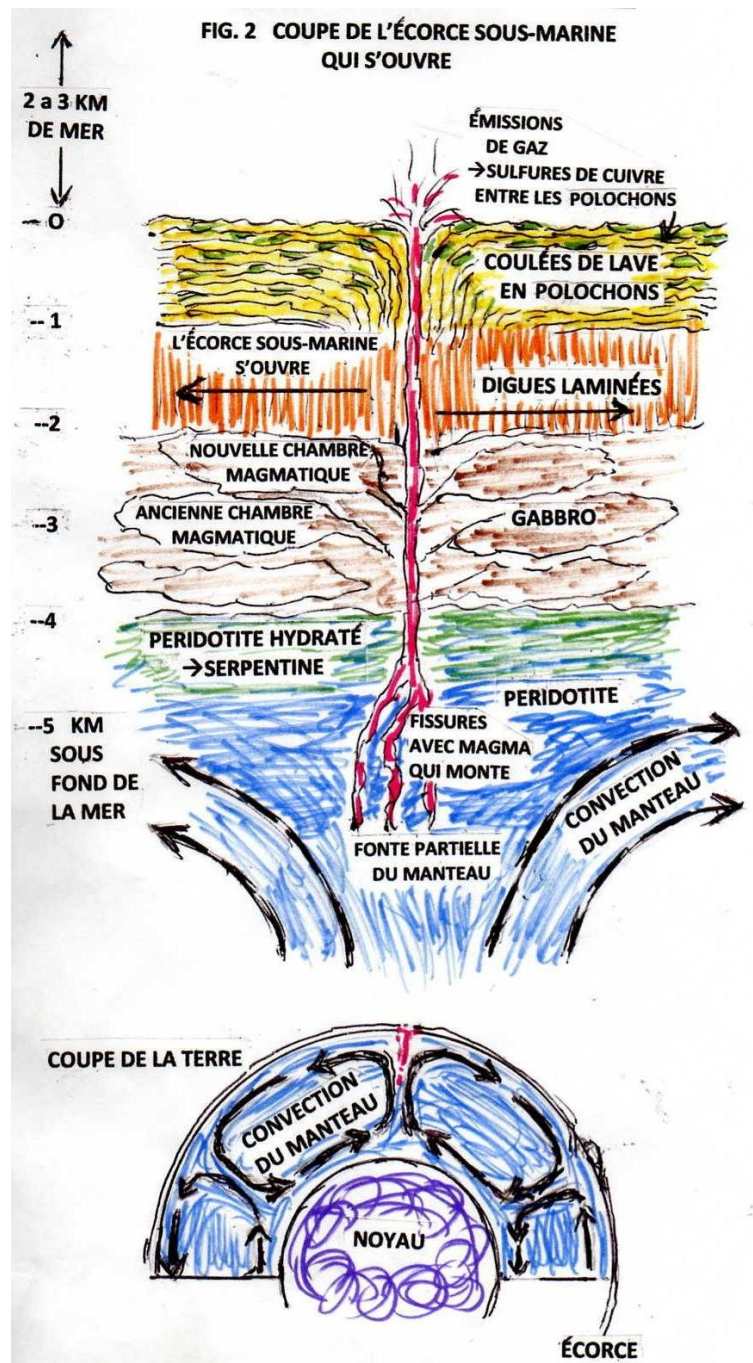 FIG. 2 COUPE DE L'ÉCORCE SOUS-MARINE
QUI S'OUVRE
2 a 3 KM
DE MER
ÉMISSIONS
DE GAZ
→SULFURES DE CUIVRE
ENTRE LES POLOCHONS
-- O
COULÉES DE LAVE
EN POLOCHONS
-- 1
L'ÉCORCE SOUS-MARINE
S'OUVRE
DIGUES LAMINÉES
--2
NOUVELLE CHAMBRE
MAGMATIQUE
ANCIENNE CHAMBRE
MAGMATIQUE
--3
GABBRO
--4
PERIDOTITE HYDRATÉ
→SERPENTINE
PERIDOTITE
--5 KM
SOUS
FOND DE
LA MER
FISSURES
AVEC MAGMA
QUI MONTE
CONVECTION
DU MANTEAU
FONTE PARTIELLE
DU MANTEAU
COUPE DE LA TERRE
CONVECTION
DU MANTEAU
NOYAU
ÉCORCE